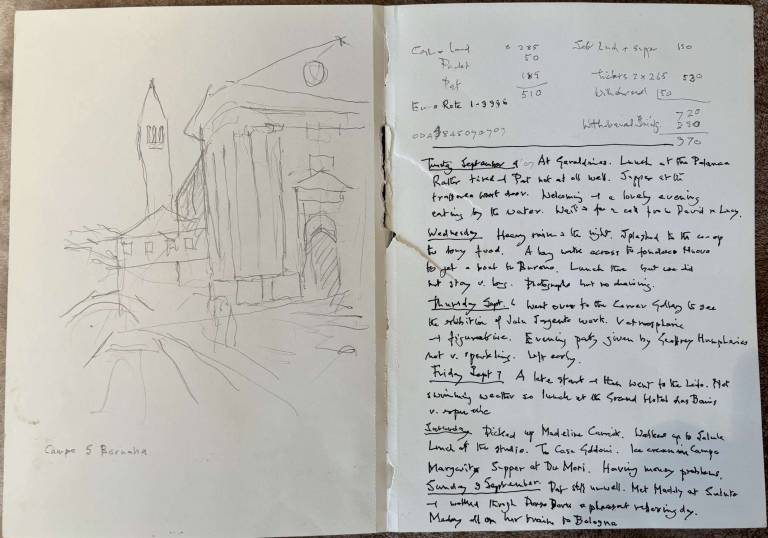 Campo S Barnaba
Cash in hand 285 Job Lunch + supper 150
50
Pat 189 Tickets 2 x 265 530
510 Withdrawal 150
Euro Rate 1-3996 720
Withdrawal
370
Tuesday September 4 At Geraldine's. Lunch at the Palanca
Rather tired + Pat not at all well. Supper at the
trattoria next door. Welcoming + a lovely evening
eating by the water. Wait for a call from David x Lucy.
Wednesday Heavy rain in the night. Splashed to the co-op
to buy food. A long walk across to Fondamente Nuove
to get a boat to Burano. Lunch there but we did
not stay v. long. Photographs but no drawing.
Thursday Sept 6 Went over to the Correr Gallery to see
the exhibition of John Sargents work. V atmospheric
+ figurative. Evening party given by Geoffrey Humphries
not v. sparkling. Left early.
Friday Sept 7 A late start + then went to the Lido. Not
swimming weather so lunch at the Grand Hotel des Bains
v.
Saturday Picked up Madeline. Walked up to Salute
Lunch at the studio. To Casa Goldoni. Ice cream in Campo
Margarita Supper at Due Mori. Having money problems.
Sunday 9 September. Pat still unwell. Met Maddy at Salute
+ walked through Dorso Duro a pleasant relaxing day.
Maddy off on her train to Bologna